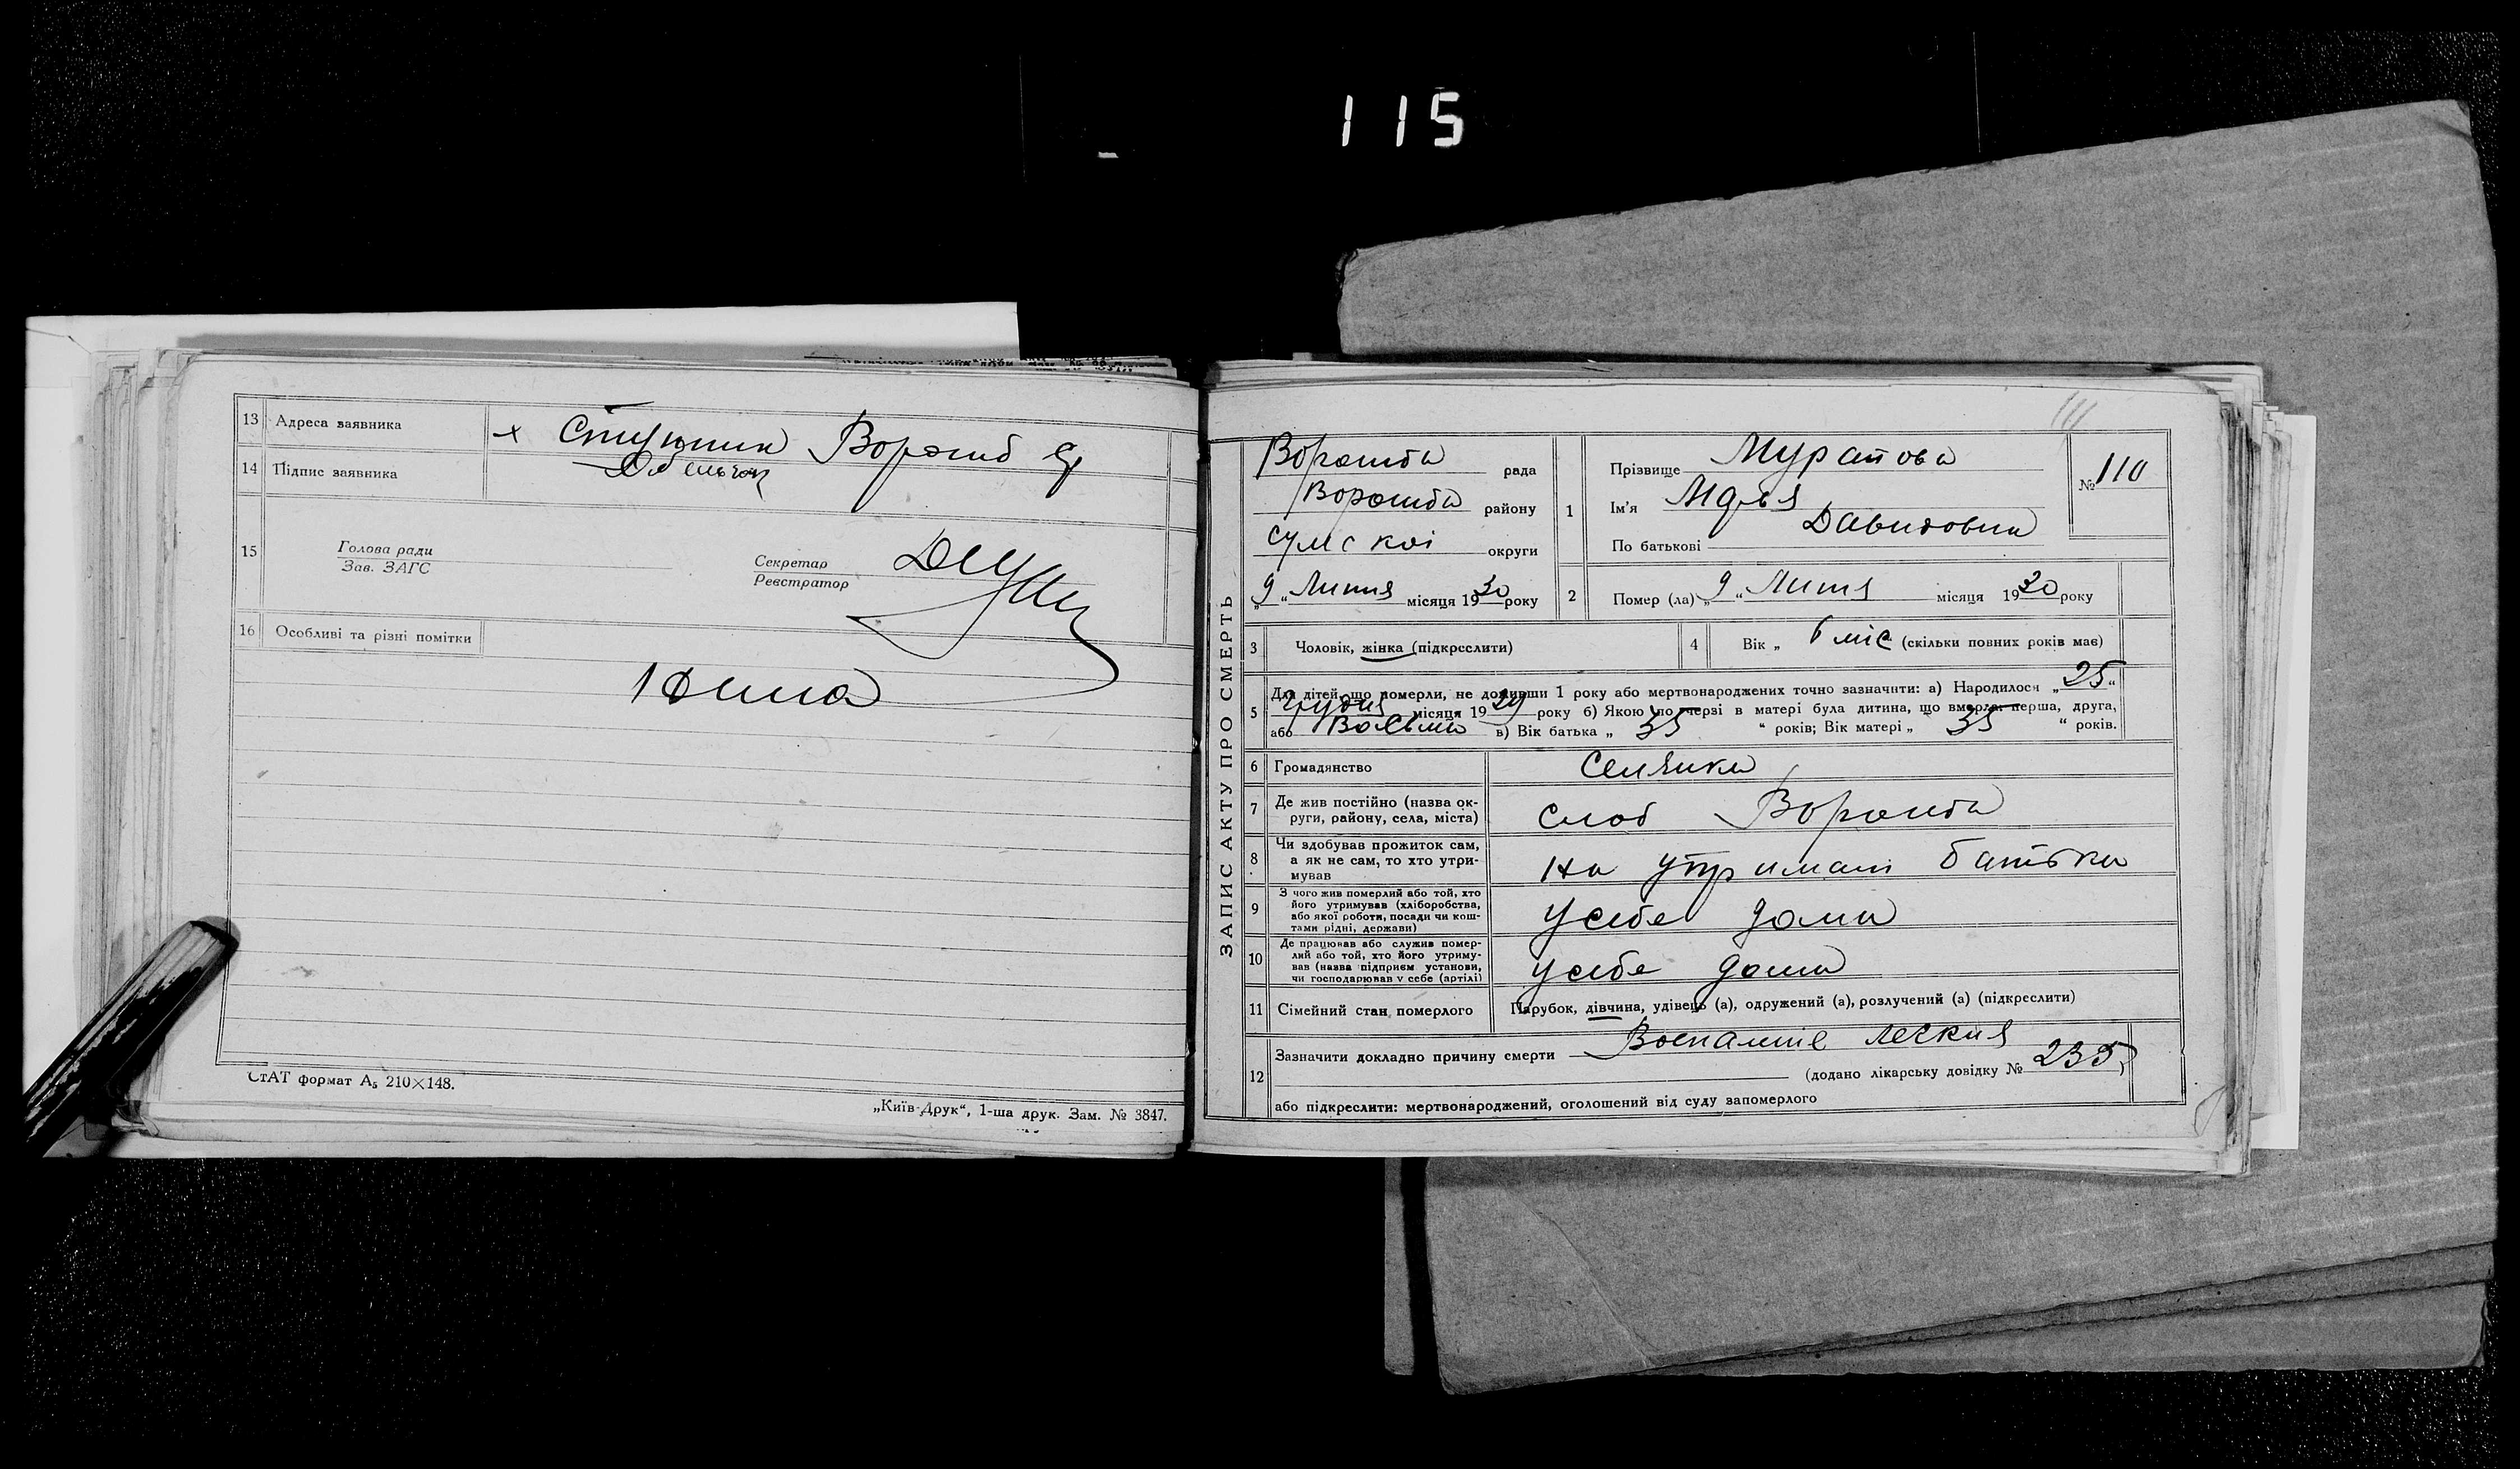 115
13 Адреса заявника
14 Підпис заявника
15 Голова ради
Зав. ЗАГС
Секретар
Реєстратор
16 Особливі та різні помітки
СтАТ формат А₅ 210×148.
„Київ-Друк“, 1-ша друк. Зам. № 3847.
ЗАПИС АКТУ ПРО СМЕРТЬ
Ворожба рада
Ворожба району
Сумскої округи
„9“ Липня місяця 1930 року
1 Прізвище Муратова
Ім'я
По батькові Давидовна
№ 110
2 Помер (ла) „9“ Липня місяця 1930 року
3 Чоловік, жінка (підкреслити)
4 Вік „ 6 міс (скільки повних років має)
5 Для дітей, що померли, не доживши 1 року або мертвонароджених точно зазначити: а) Народилося „25“
Грудня місяця 1929 року б) Якою по черзі в матері була дитина, що вмерла: перша, друга,
або Восьма в) Вік батька „ 35 “ років; Вік матері „ 35 “ років.
6 Громадянство Селянка
7 Де жив постійно (назва ок-
руги, району, села, міста) Слоб Ворожба
8 Чи здобував прожиток сам,
а як не сам, то хто утри-
мував На утримані батька
9 З чого жив померлий або той, хто
його утримував (хліборобства,
або якої роботи, посади чи кош-
тами рідні, держави) у себе дома
10 Де працював або служив помер-
лий або той, хто його утриму-
вав (назва підприєм установи,
чи господарював у себе (артілі) у себе дома
11 Сімейний стан померлого Парубок, дівчина, удівець (а), одружений (а), розлучений (а) (підкреслити)
12 Зазначити докладно причину смерти
(додано лікарську довідку № 235)
або підкреслити: мертвонароджений, оголошений від суду запомерлого